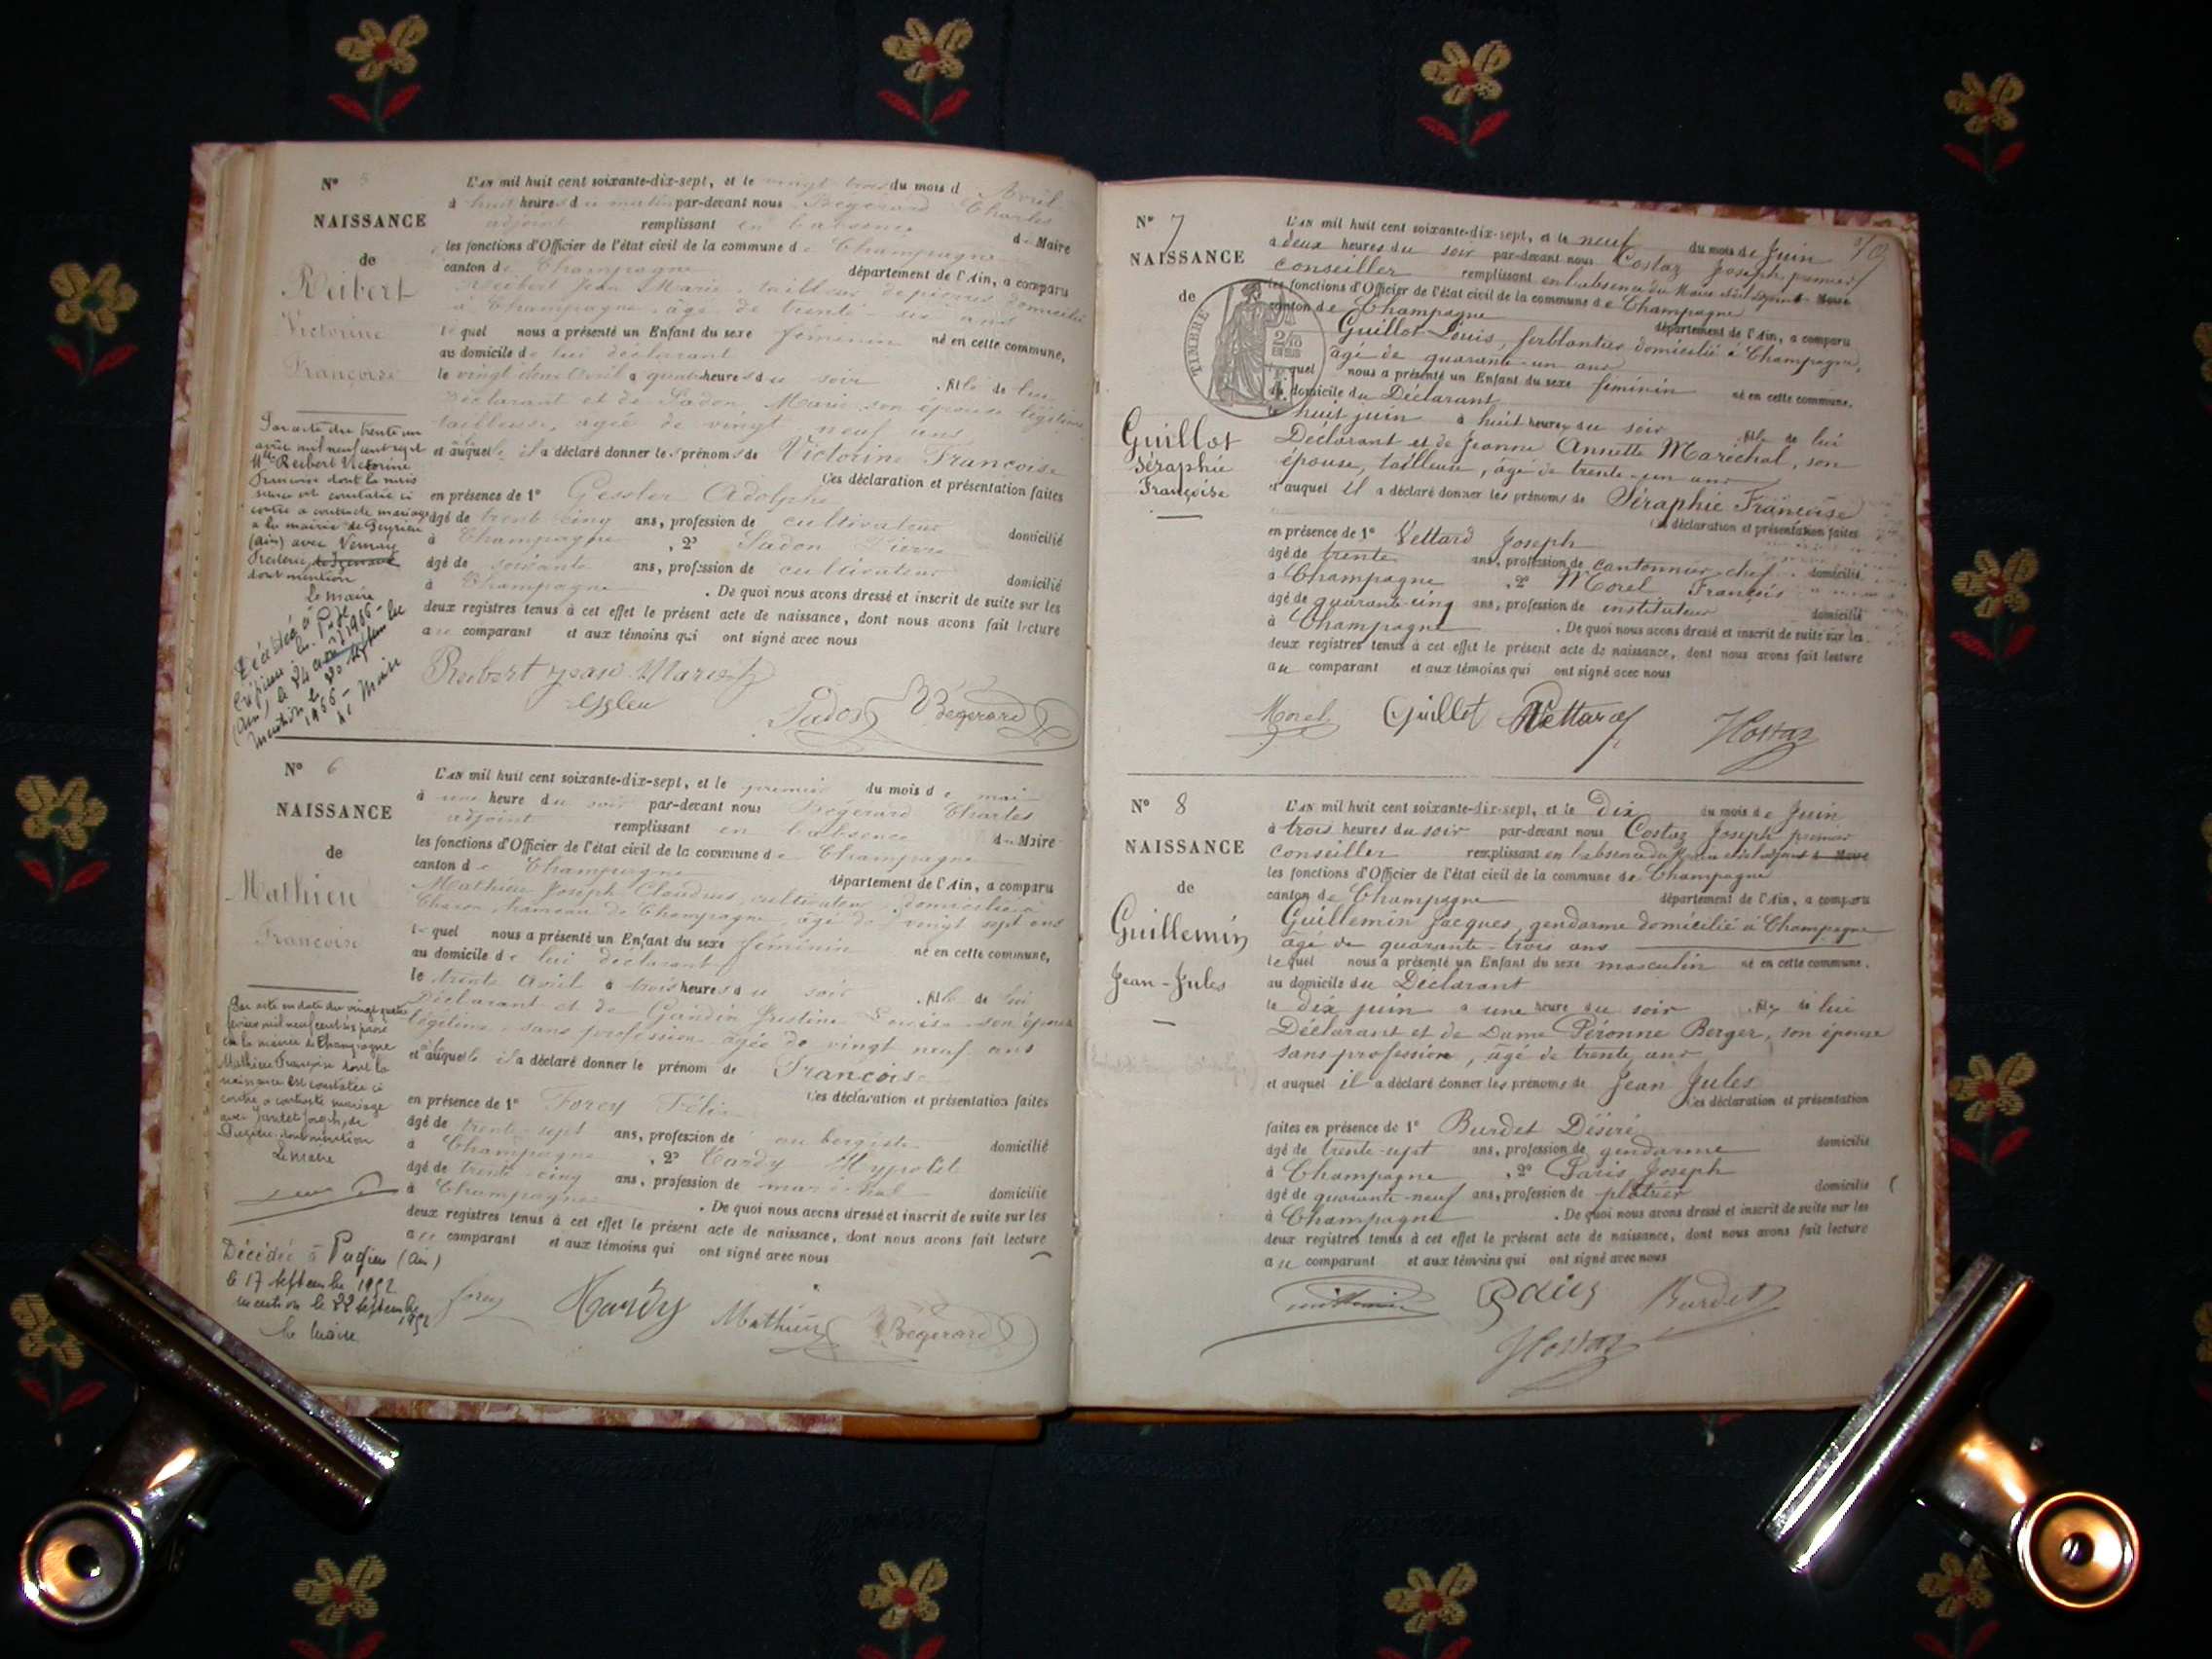 N° 5
NAISSANCE
de
Reibert
Victorine
Françoise
L'AN mil huit cent soixante-dix-sept, et le vingt trois du mois d Avril
à huit heures du matin par-devant nous Bégerard Charles
adjoint remplissant en l'absence du Maire
les fonctions d'Officier de l'état civil de la commune de Champagne
canton de Champagne département de l'Ain, a comparu
Reibert Jean Marie, tailleur de pierres, domicilié
à Champagne, âgé de trente-six ans
lequel nous a présenté un Enfant du sexe féminin né en cette commune,
au domicile de lui déclarant
le vingt deux Avril à quatre heures du soir fille de lui
Déclarant et de Sadon, Marie, son épouse légitime,
tailleuse, agée de vingt neuf ans
et auquel il a déclaré donner les prénoms de Victorine Françoise
Ces déclaration et présentation faites
en présence de 1° Gessler Adolphe
âgé de trente cinq ans, profession de cultivateur domicilié
à Champagne, 2° Sadon Pierre
âgé de soixante ans, profession de cultivateur domicilié
à Champagne. De quoi nous avons dressé et inscrit de suite sur les
deux registres tenus à cet effet le présent acte de naissance, dont nous avons fait lecture
au comparant et aux témoins qui ont signé avec nous
Reibert jean Marie
Sadon Bégerard
Par acte du trente un
mil neuf cent sept
Mlle Reibert Victorine
Françoise dont la nais
sance est constatée ci
contre a contracté mariage
à la mairie de Peyrieu
(Ain) avec
Frédéric
dont mention
Le Maire
Décédée à
(Ain) le 24
Mention le 30 septembre
1966 - Le Maire
N° 6
NAISSANCE
de
Mathieu
Françoise
L'AN mil huit cent soixante-dix-sept, et le premier du mois de mai
à une heure du soir par-devant nous Bégerard Charles
adjoint remplissant en l'absence du Maire
les fonctions d'Officier de l'état civil de la commune de Champagne
canton de Champagne département de l'Ain, a comparu
Mathieu Joseph Claudius, cultivateur, domicilié à
hameau de Champagne, âgé de vingt sept ans
lequel nous a présenté un Enfant du sexe féminin né en cette commune,
au domicile de lui déclarant
le trente Avril à trois heures du soir fille de lui
Déclarant et de son épouse
légitime, sans profession, âgée de vingt neuf ans
et auquel il a déclaré donner le prénom de Françoise
Ces déclaration et présentation faites
en présence de 1° Forey Félix
âgé de trente-sept ans, profession de aubergiste domicilié
à Champagne, 2° Hardy Hypolite
âgé de trente cinq ans, profession de maréchal domicilié
à Champagne. De quoi nous avons dressé et inscrit de suite sur les
deux registres tenus à cet effet le présent acte de naissance, dont nous avons fait lecture
au comparant et aux témoins qui ont signé avec nous
Forey Hardy Mathieu Bégerard
Par acte en date du vingt quatre
février mil neuf cent six passé
en la mairie de Champagne
Mathieu Françoise dont la
naissance est constatée ci
contre a contracté mariage
avec Jantet Joseph, de
Pugieu, dont mention
Le Maire
Décédée à Pugieu (Ain)
le 17 septembre 1952
mention le 22 septembre
1952
Le Maire
N° 7
NAISSANCE
de
TIMBRE
Guillot
Séraphie
Françoise
L'AN mil huit cent soixante-dix-sept, et le neuf du mois de Juin
à deux heures du soir par-devant nous Costaz Joseph premier
conseiller remplissant en l'absence du Maire et de l'adjoint
les fonctions d'Officier de l'état civil de la commune de Champagne
canton de Champagne département de l'Ain, a comparu
Guillot Louis, ferblantier domicilié à Champagne,
âgé de quarante-un ans
lequel nous a présenté un Enfant du sexe féminin né en cette commune,
au domicile du Déclarant
le huit juin à huit heures du soir fille de lui
Déclarant et de Jeanne Annette Maréchal, son
épouse, tailleuse, âgé de trente-un ans
et auquel il a déclaré donner les prénoms de Séraphie Françoise
Ces déclaration et présentation faites
en présence de 1° Vettard Joseph
âgé de trente ans, profession de cantonnier chef domicilié
à Champagne, 2° Morel François
âgé de quarante-cinq ans, profession de instituteur domicilié
à Champagne. De quoi nous avons dressé et inscrit de suite sur les
deux registres tenus à cet effet le présent acte de naissance, dont nous avons fait lecture
au comparant et aux témoins qui ont signé avec nous
Morel Guillot Vettard JCostaz
N° 8
NAISSANCE
de
Guillemin
Jean-Jules
L'AN mil huit cent soixante-dix-sept, et le Dix du mois de Juin
à trois heures du soir par-devant nous Costaz Joseph premier
conseiller remplissant en l'absence du Maire et de l'adjoint
les fonctions d'Officier de l'état civil de la commune de Champagne
canton de Champagne département de l'Ain, a comparu
Guillemin Jacques, gendarme domicilié à Champagne
âgé de quarante-trois ans
lequel nous a présenté un Enfant du sexe masculin né en cette commune,
au domicile du Déclarant
le dix juin à une heure du soir fils de lui
Déclarant et de Dame Péronne Berger, son épouse
sans profession, âgé de trente ans
et auquel il a déclaré donner les prénoms de Jean Jules
Ces déclaration et présentation
faites en présence de 1° Burdet Désiré
âgé de trente-sept ans, profession de gendarme domicilié
à Champagne, 2° Paris Joseph
âgé de quarante-neuf ans, profession de plâtrier domicilié
à Champagne. De quoi nous avons dressé et inscrit de suite sur les
deux registres tenus à cet effet le présent acte de naissance, dont nous avons fait lecture
au comparant et aux témoins qui ont signé avec nous
Guillemin Paris Burdet
JCostaz